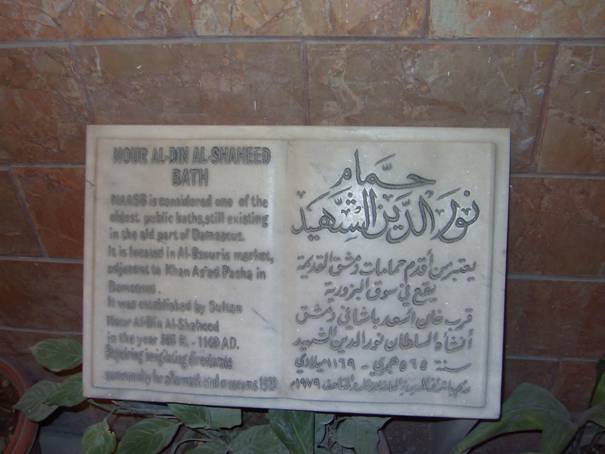 NOUR AL-DIN AL-SHAHEED
BATH
is considered one of the
oldest public baths, still existing
in the old part of Damascus.
It is located in Al-Bzouria market,
adjacent to Khan As'ad Pasha in
Damascus.
It was established by Sultan
Nour Al-Din Al-Shaheed
in the year 565 H. - 1169 AD.
حمام
نور الدين الشهيد
يعتبر من أقدم حمامات دمشق القديمة
يقع في سوق البزورية
قرب خان أسعد باشا في دمشق
أنشأه السلطان نور الدين الشهيد
سنة ٥٦٥ هجري - ١١٦٩ ميلادي
١٩٧٩م